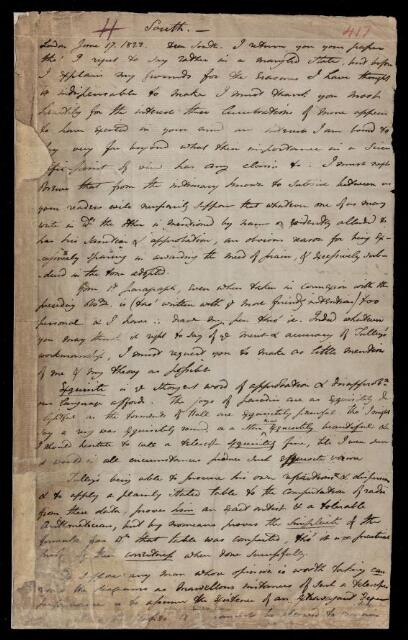 H South. — 417
London June 17. 1823. Dear South. I return you your paper
tho' I regret to say rather in a mangled state, but before
I explain my grounds for the erasures I have thought
it indispensable to make I must thank you most
heartily for the interest these lucubrations of mine appear
to have excited in you and an interest I am bound to
say very far beyond what their importance in a Scien-
tific point of view has any claim to. I must next
observe that from the intimacy known to subsist between us
your readers will necessarily suppose that whatever one of us may
write in wh. the other is mentioned by name or evidently alluded to
has his sanction & approbation, an obvious reason for being ex-
cessively sparing in awarding the meed of praise, & excessively sub-
dued in the tone adopted.
Your 1st paragraph, even when taken in connexion with the
preceding is (tho' written with ye most friendly intention) too
personal & I have my pen thro' it. Indeed whatever
you may think it right to say of ye merit & accuracy of Tulley's
workmanship, I must request you to make as little mention
of me & my theory as possible.
Exquisite is ye strongest word of approbation & disapprobn.
our language affords. The joys of paradise are as exquisitely de-
lightful as the torments of Hell are exquisitely painful.
was exquisitely exquisitely beautiful
I should hesitate to call a telescope exquisitely fine, tho' I even
it would in all circumstances produce such
Tulley's being able to procure his own refractions & dispersions
& to apply a plainly stated table to the computation of radii
from these data proves him an and a tolerable
Arithmetician, but by no means proves the simplicity of the
formula from wh. that table was computed, tho' it is a practical
of their correctness when done successfully.
any man whose opinion is worth taking can
as marvellous instances of such a telescope
is to the existence of an
to be allowed to